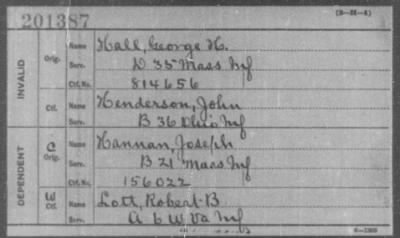 201387
(3-21-1)
INVALID
Orig. Name Hall, George H.
Serv. D 35 Mass Inf
Ctf. No. 814656
Ctf. Name Henderson, John
Serv. B 36 Ohio Inf
DEPENDENT
C Orig. Name Hannan, Joseph
Serv. B 21 Mass Inf
Ctf. No. 156022
W Ctf. Name Lott, Robert B
Serv. A 6 W Va Inf